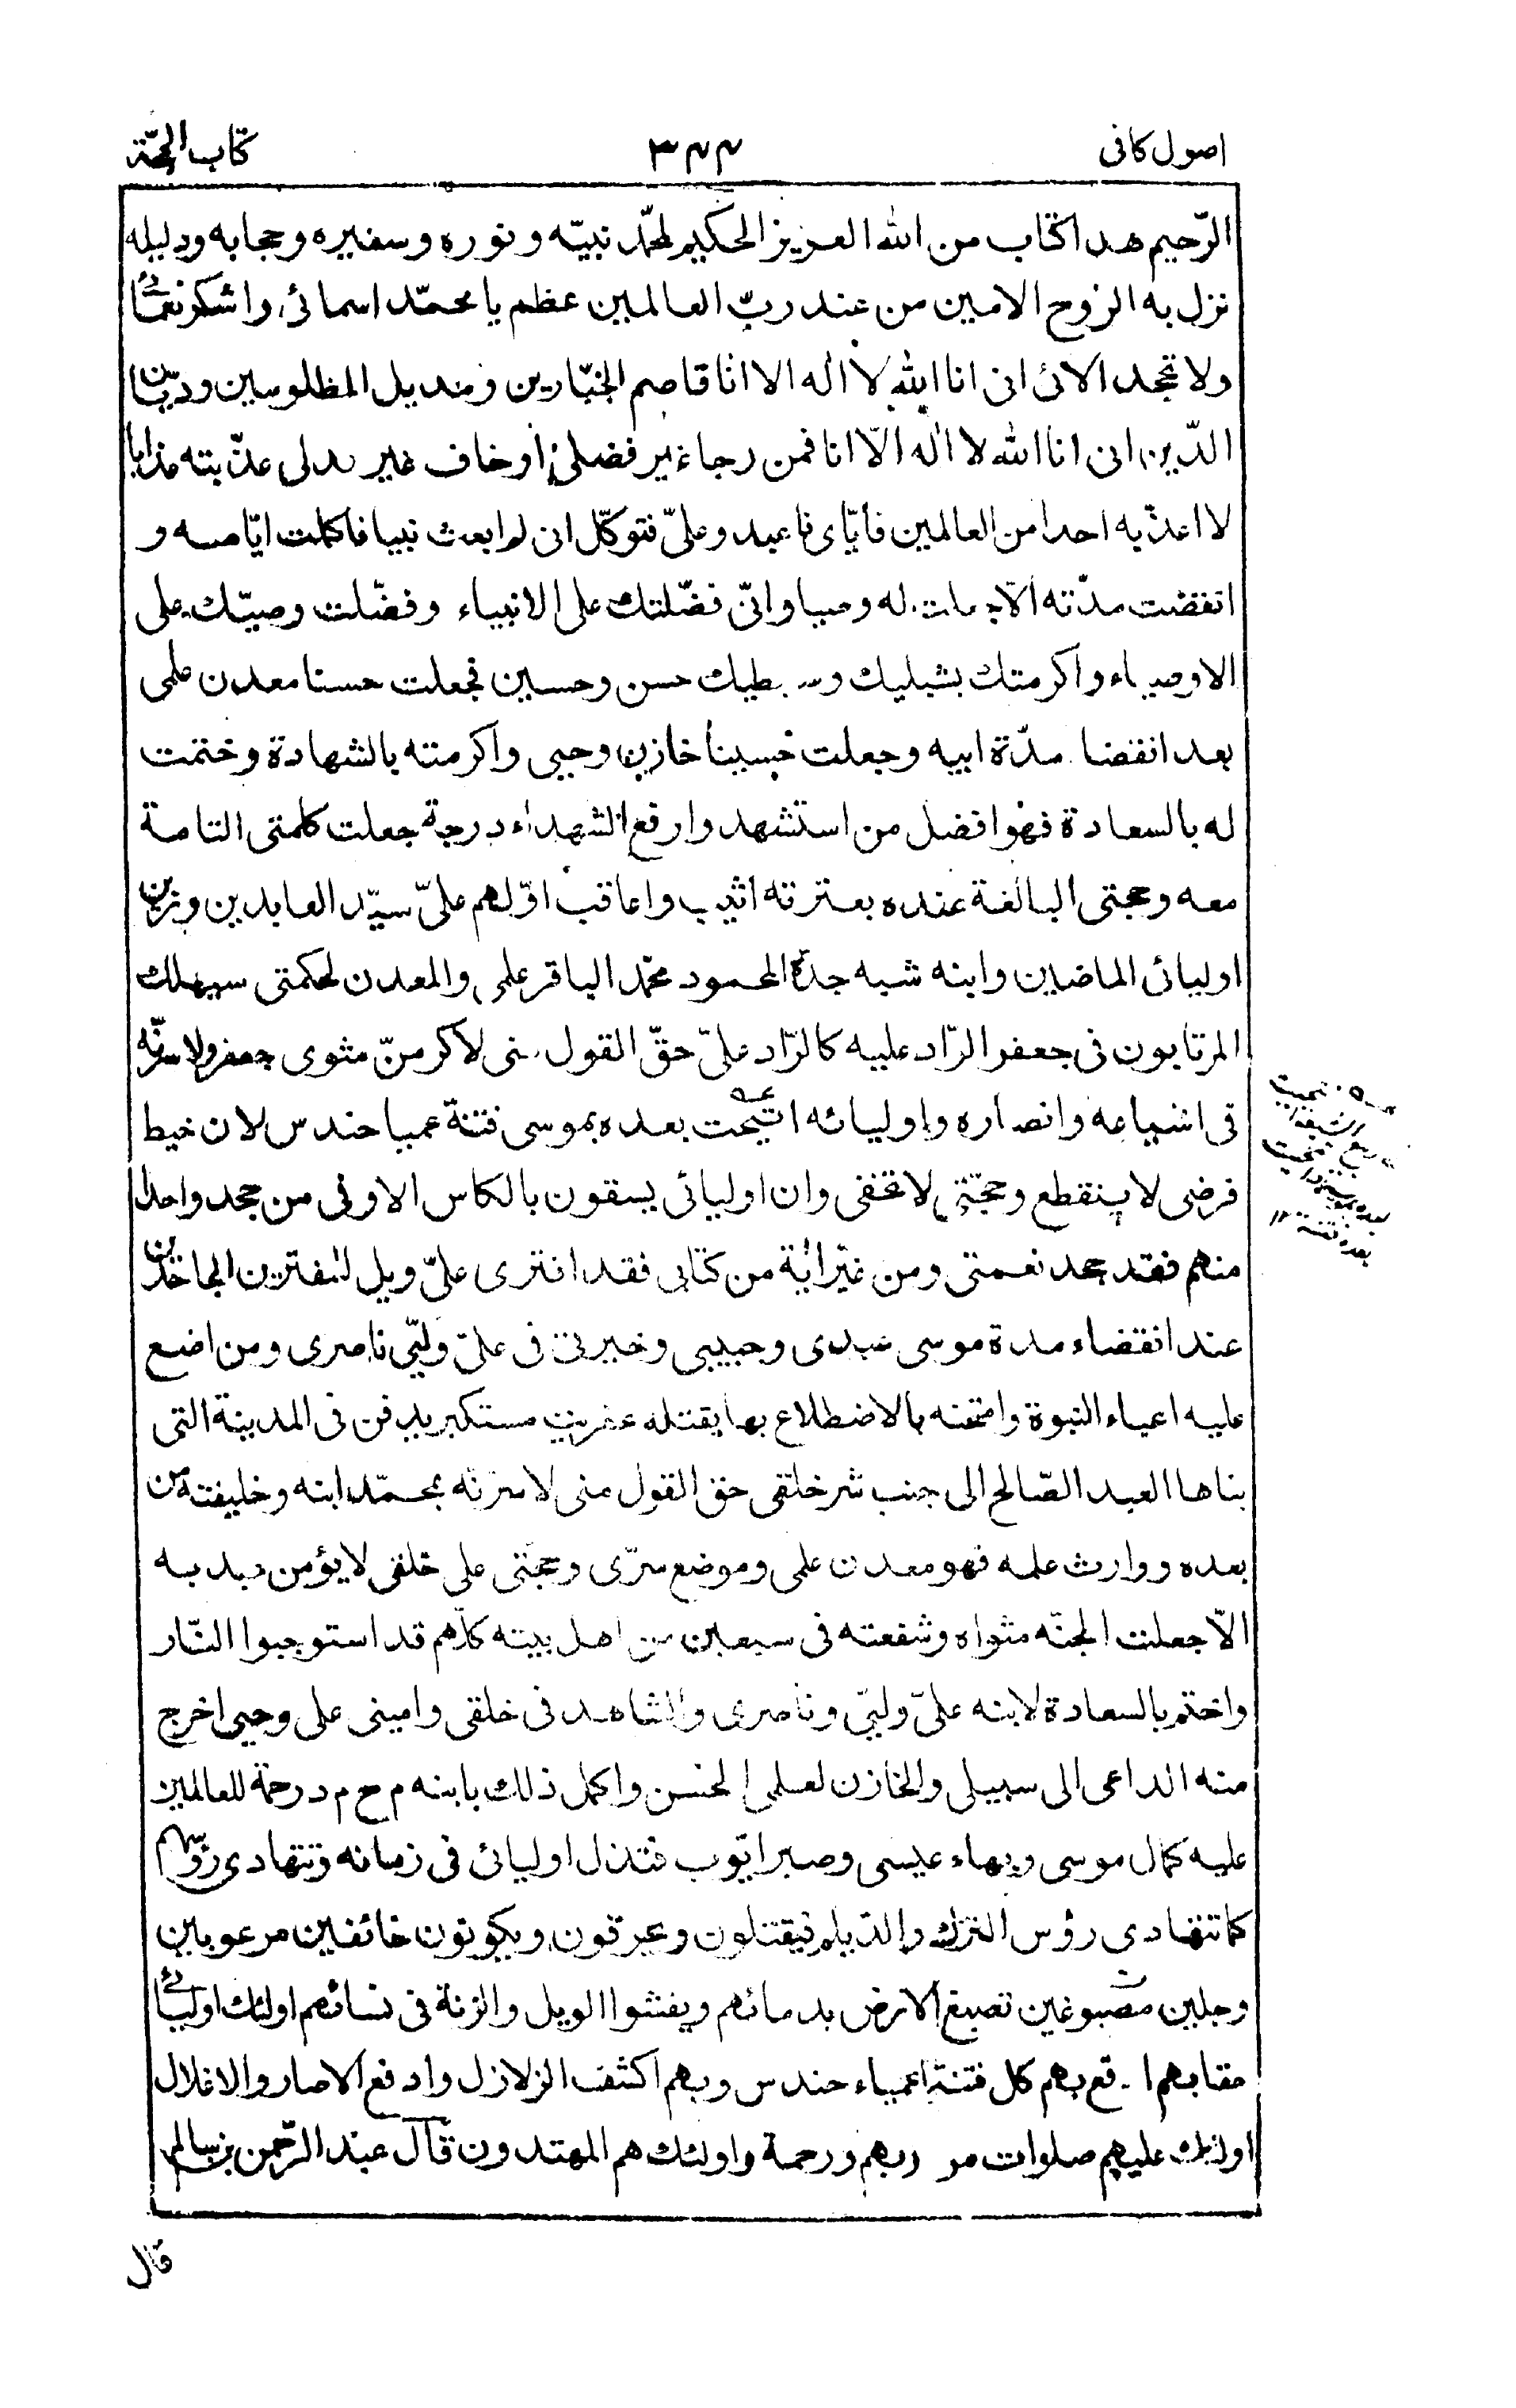 اصول كافى
٣٤٤
كتاب الحجّة
الرّحيم هذا كتاب من الله العزيز الحكيم لمحمّد نبيّه ونوره وسفيره وحجابه ودليله
نزل به الروح الامين من عند ربّ العالمين عظم يا محمّد اسمائى واشكر نعمائى
ولا تجحد الائى انى انا الله لا اله الا انا قاصم الجبّارين ومديل المظلومين وديّان
الدّين انى انا الله لا اله الّا انا فمن رجا غير فضلى او خاف غير عدلى عذّبته عذابا
لا اعذّبه احدا من العالمين فايّاى فاعبد وعلىّ فتوكّل انى لم ابعث نبيا فاكملت ايّامه و
انقضت مدّته الّا جعلت له وصيا وانّى فضّلتك على الانبياء وفضّلت وصيّك على
الاوصياء واكرمتك بشبليك وسبطيك حسن وحسين فجعلت حسنا معدن علمى
بعد انقضا مدّة ابيه وجعلت حسينا خازن وحيى واكرمته بالشهادة وختمت
له بالسعادة فهو افضل من استشهد وارفع الشهداء درجة جعلت كلمتى التامة
معه وحجتى البالغة عنده بعترته اثيب واعاقب اوّلهم علىّ سيّد العابدين وزين
اوليائى الماضين وابنه شبه جدّه المحمود محمّد الباقر علمى والمعدن لحكمتى سيهلك
المرتابون فى جعفر الرّاد عليه كالرّاد علىّ حقّ القول منى لاكرمنّ مثوى جعفر ولاسرنّه
فى اشياعه وانصاره واوليائه اتيحت بعده بموسى فتنة عميا حندس لان خيط
فرضى لا ينقطع وحجّتى لا تخفى وان اوليائى يسقون بالكاس الاوفى من جحد واحدا
منهم فقد جحد نعمتى ومن غيّر اية من كتابى فقد افترى علىّ ويل للمفترين الجاحدين
عند انقضاء مدة موسى عبدى وحبيبى وخيرتى فى علىّ وليّى ناصرى ومن اضع
عليه اعباء النبوة وامتحنه بالاضطلاع بها يقتله عفريت مستكبر يدفن فى المدينة التى
بناها العبد الصّالح الى جنب شر خلقى حق القول منى لاسرنّه بمحمّد ابنه وخليفته من
بعده ووارث علمه فهو معدن علمى وموضع سرّى وحجتى على خلقى لا يؤمن عبد به
الّا جعلت الجنّه مثواه وشفعته فى سبعين من اهل بيته كلّهم قد استوجبوا النّار
واختم بالسعادة لابنه علىّ وليّى وناصرى والشاهد فى خلقى وامينى على وحيى اخرج
منه الداعى الى سبيلى والخازن لعلمى الحسن واكمل ذلك بابنه م ح م د رحمة للعالمين
عليه كمال موسى وبهاء عيسى وصبر ايّوب فتذل اوليائى فى زمانه وتتهادى رؤسهم
كما تتهادى رؤس الترك والدّيلم فيقتلون ويحرقون ويكونون خائفين مرعوبين
وجلين مصبوغين تصبغ الارض بدمائهم ويفشوا الويل والرنة فى نسائهم اولئك اوليائى
حقا بهم ادفع بهم كل فتنة عمياء حندس وبهم اكشف الزلازل وادفع الاصار والاغلال
اولئك عليهم صلوات من ربهم ورحمة واولئك هم المهتدون قال عبد الرّحمن بن سالم
قال